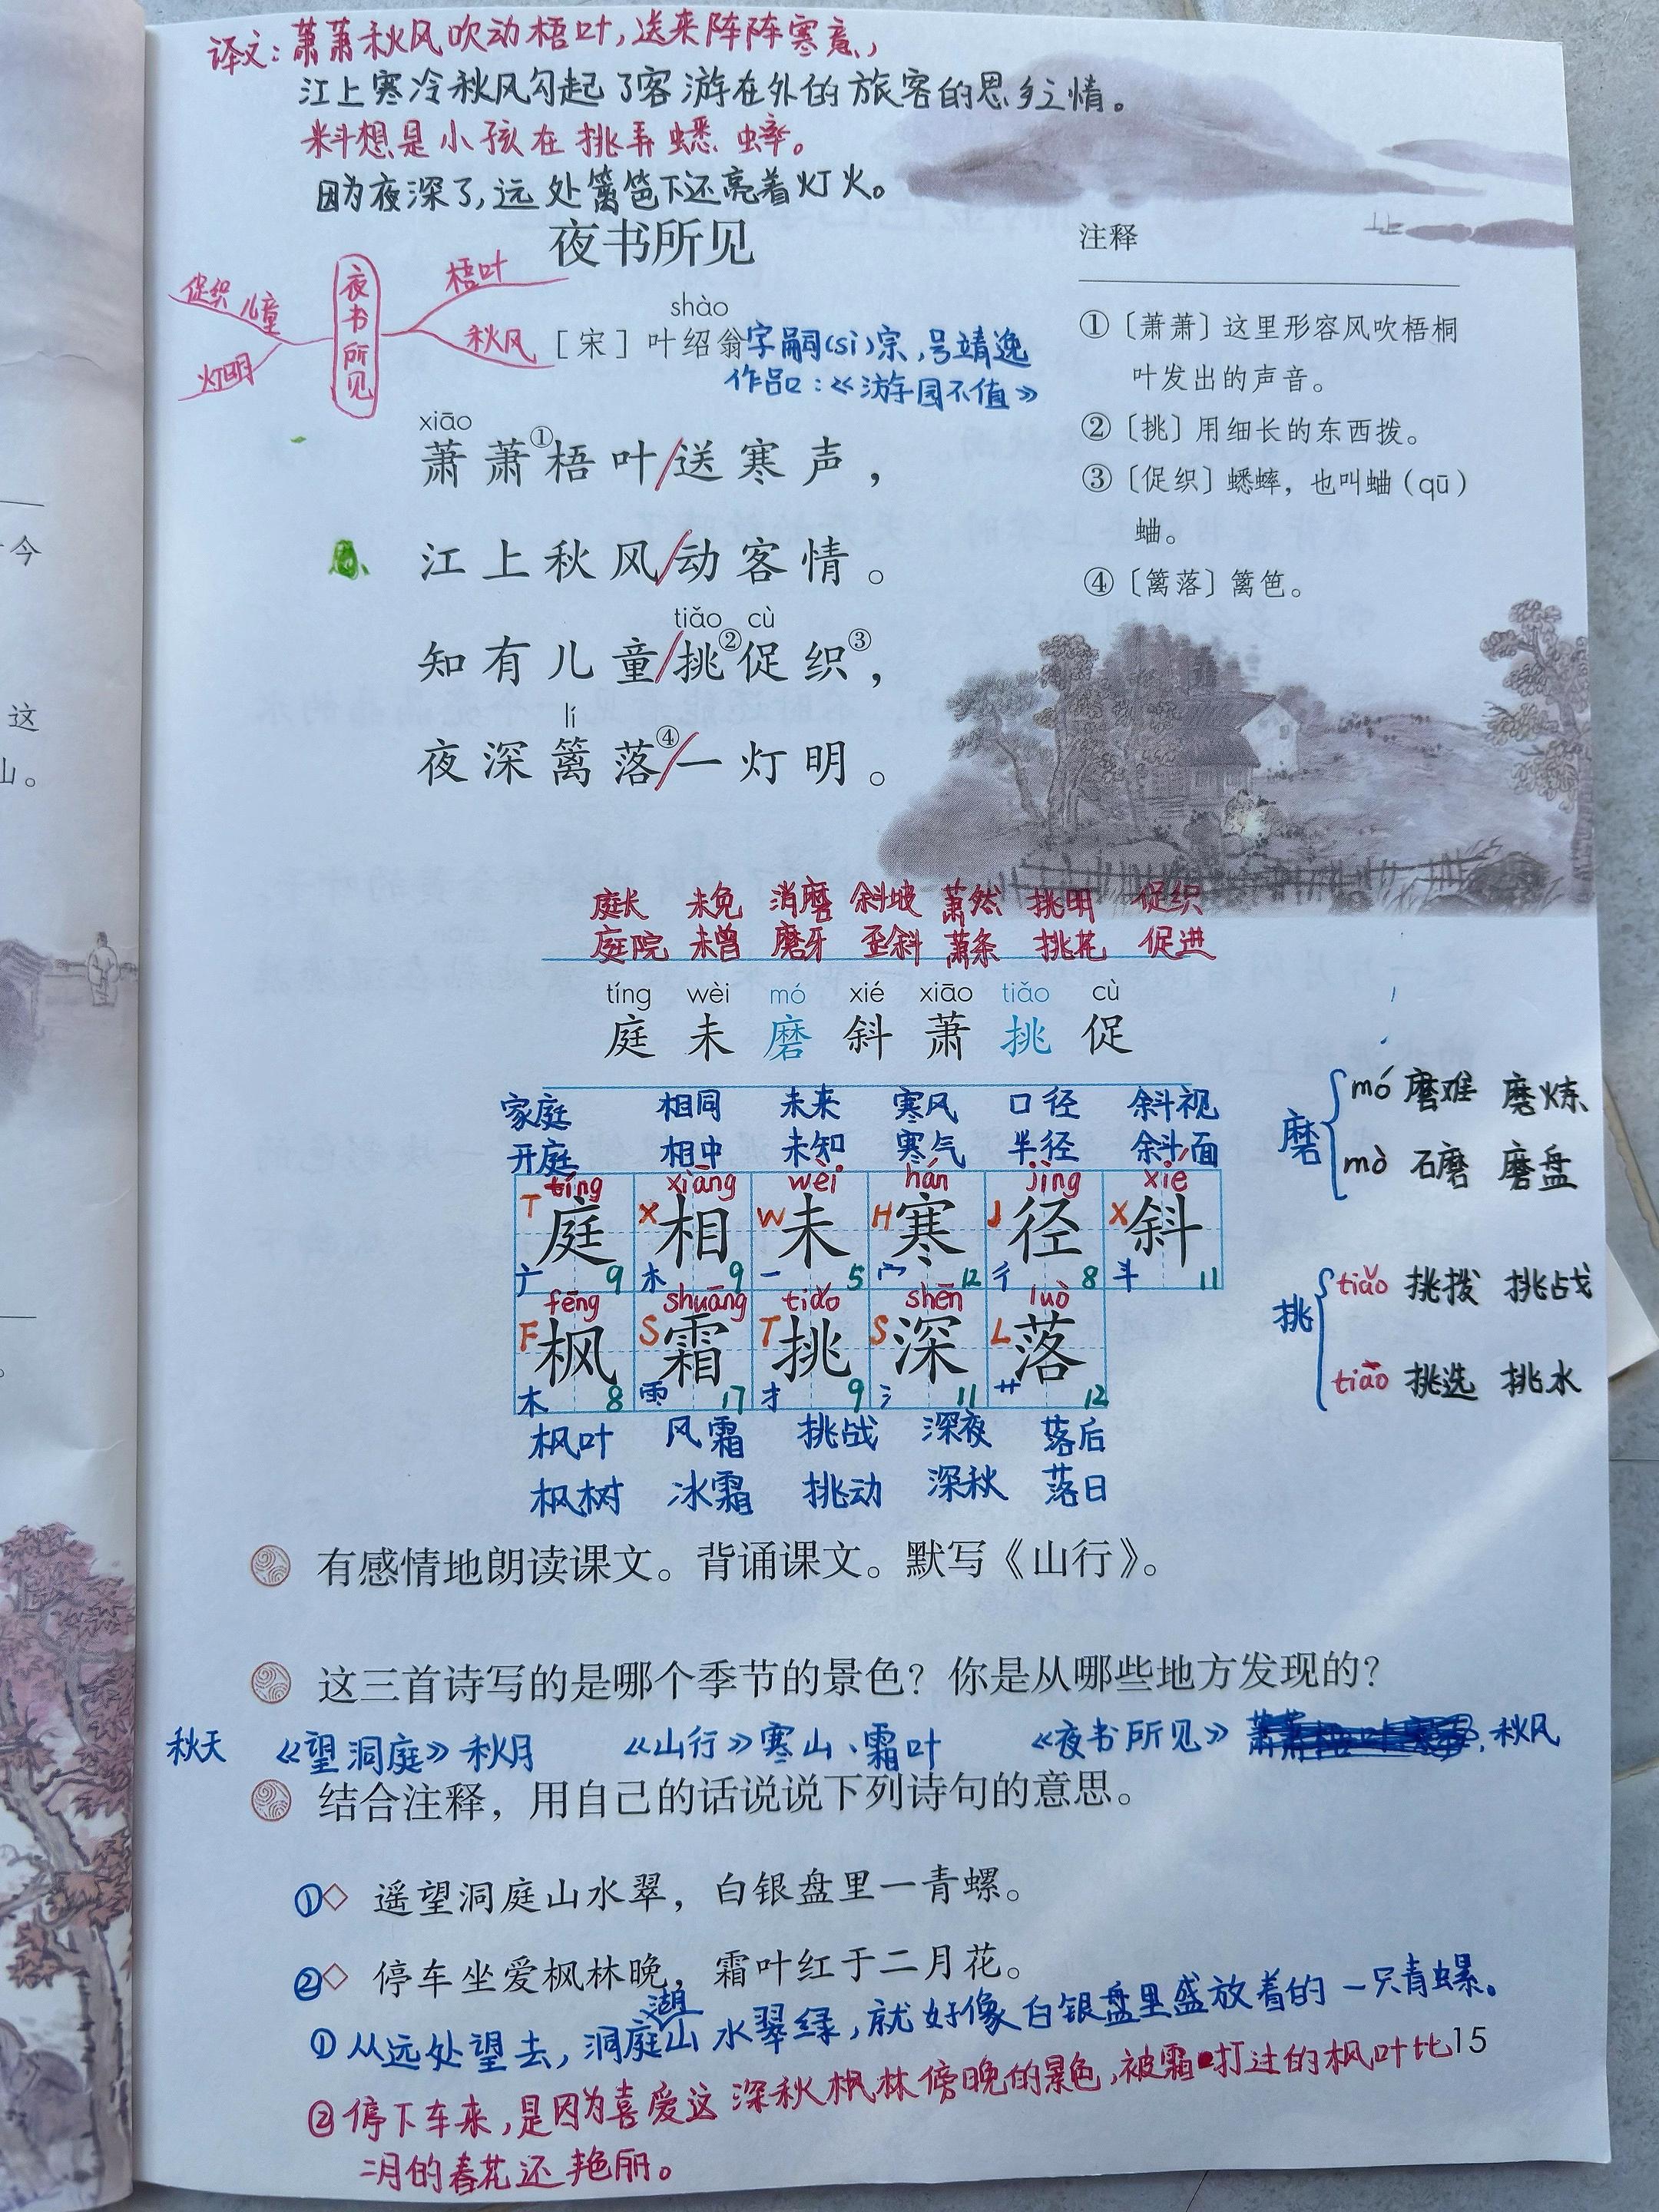 译文：萧萧秋风吹动梧叶，送来阵阵寒意，
江上寒冷秋风勾起了客游在外的旅客的思乡之情。
料想是小孩在挑弄蟋蟀。
因为夜深了，远处篱笆下还亮着灯火。
夜书所见
促织 儿童
灯明
夜书所见
梧叶
秋风
shào
［宋］叶绍翁
字嗣(sì)宗，号靖逸
作品：《游园不值》
xiāo
萧萧①梧叶/送寒声，
江上秋风/动客情。
tiǎo cù
知有儿童/挑②促织③，
lí
夜深篱落④/一灯明。
注释
①〔萧萧〕这里形容风吹梧桐
叶发出的声音。
②〔挑〕用细长的东西拨。
③〔促织〕蟋蟀，也叫蛐（qū）
蛐。
④〔篱落〕篱笆。
今
这
山。
庭长 未免 消磨 斜坡 萧然 挑明 促织
庭院 未曾 磨牙 歪斜 萧条 挑花 促进
tíng wèi mó xié xiāo tiǎo cù
庭 未 磨 斜 萧 挑 促
家庭 相同 未来 寒风 口径 斜视
开庭 相中 未知 寒气 半径 斜面
tíng xiāng wèi hán jìng xié
T 庭 X 相 W 未 H 寒 J 径 X 斜
广 9 木 9 一 5 宀 12 彳 8 斗 11
fēng shuāng tiǎo shēn luò
F 枫 S 霜 T 挑 S 深 L 落
木 8 雨 17 扌 9 氵 11 艹 12
枫叶 风霜 挑战 深夜 落后
枫树 冰霜 挑动 深秋 落日
磨
mó 磨难 磨炼
mò 石磨 磨盘
挑
tiǎo 挑拨 挑战
tiāo 挑选 挑水
有感情地朗读课文。背诵课文。默写《山行》。
这三首诗写的是哪个季节的景色？你是从哪些地方发现的？
秋天 《望洞庭》秋月 《山行》寒山、霜叶 《夜书所见》 秋风
结合注释，用自己的话说说下列诗句的意思。
①◇ 遥望洞庭山水翠，白银盘里一青螺。
②◇ 停车坐爱枫林晚，霜叶红于二月花。
湖
①从远处望去，洞庭山水翠绿，就好像白银盘里盛放着的一只青螺。
15
②停下车来，是因为喜爱这深秋枫林傍晚的景色，被霜打过的枫叶比
二月的春花还艳丽。